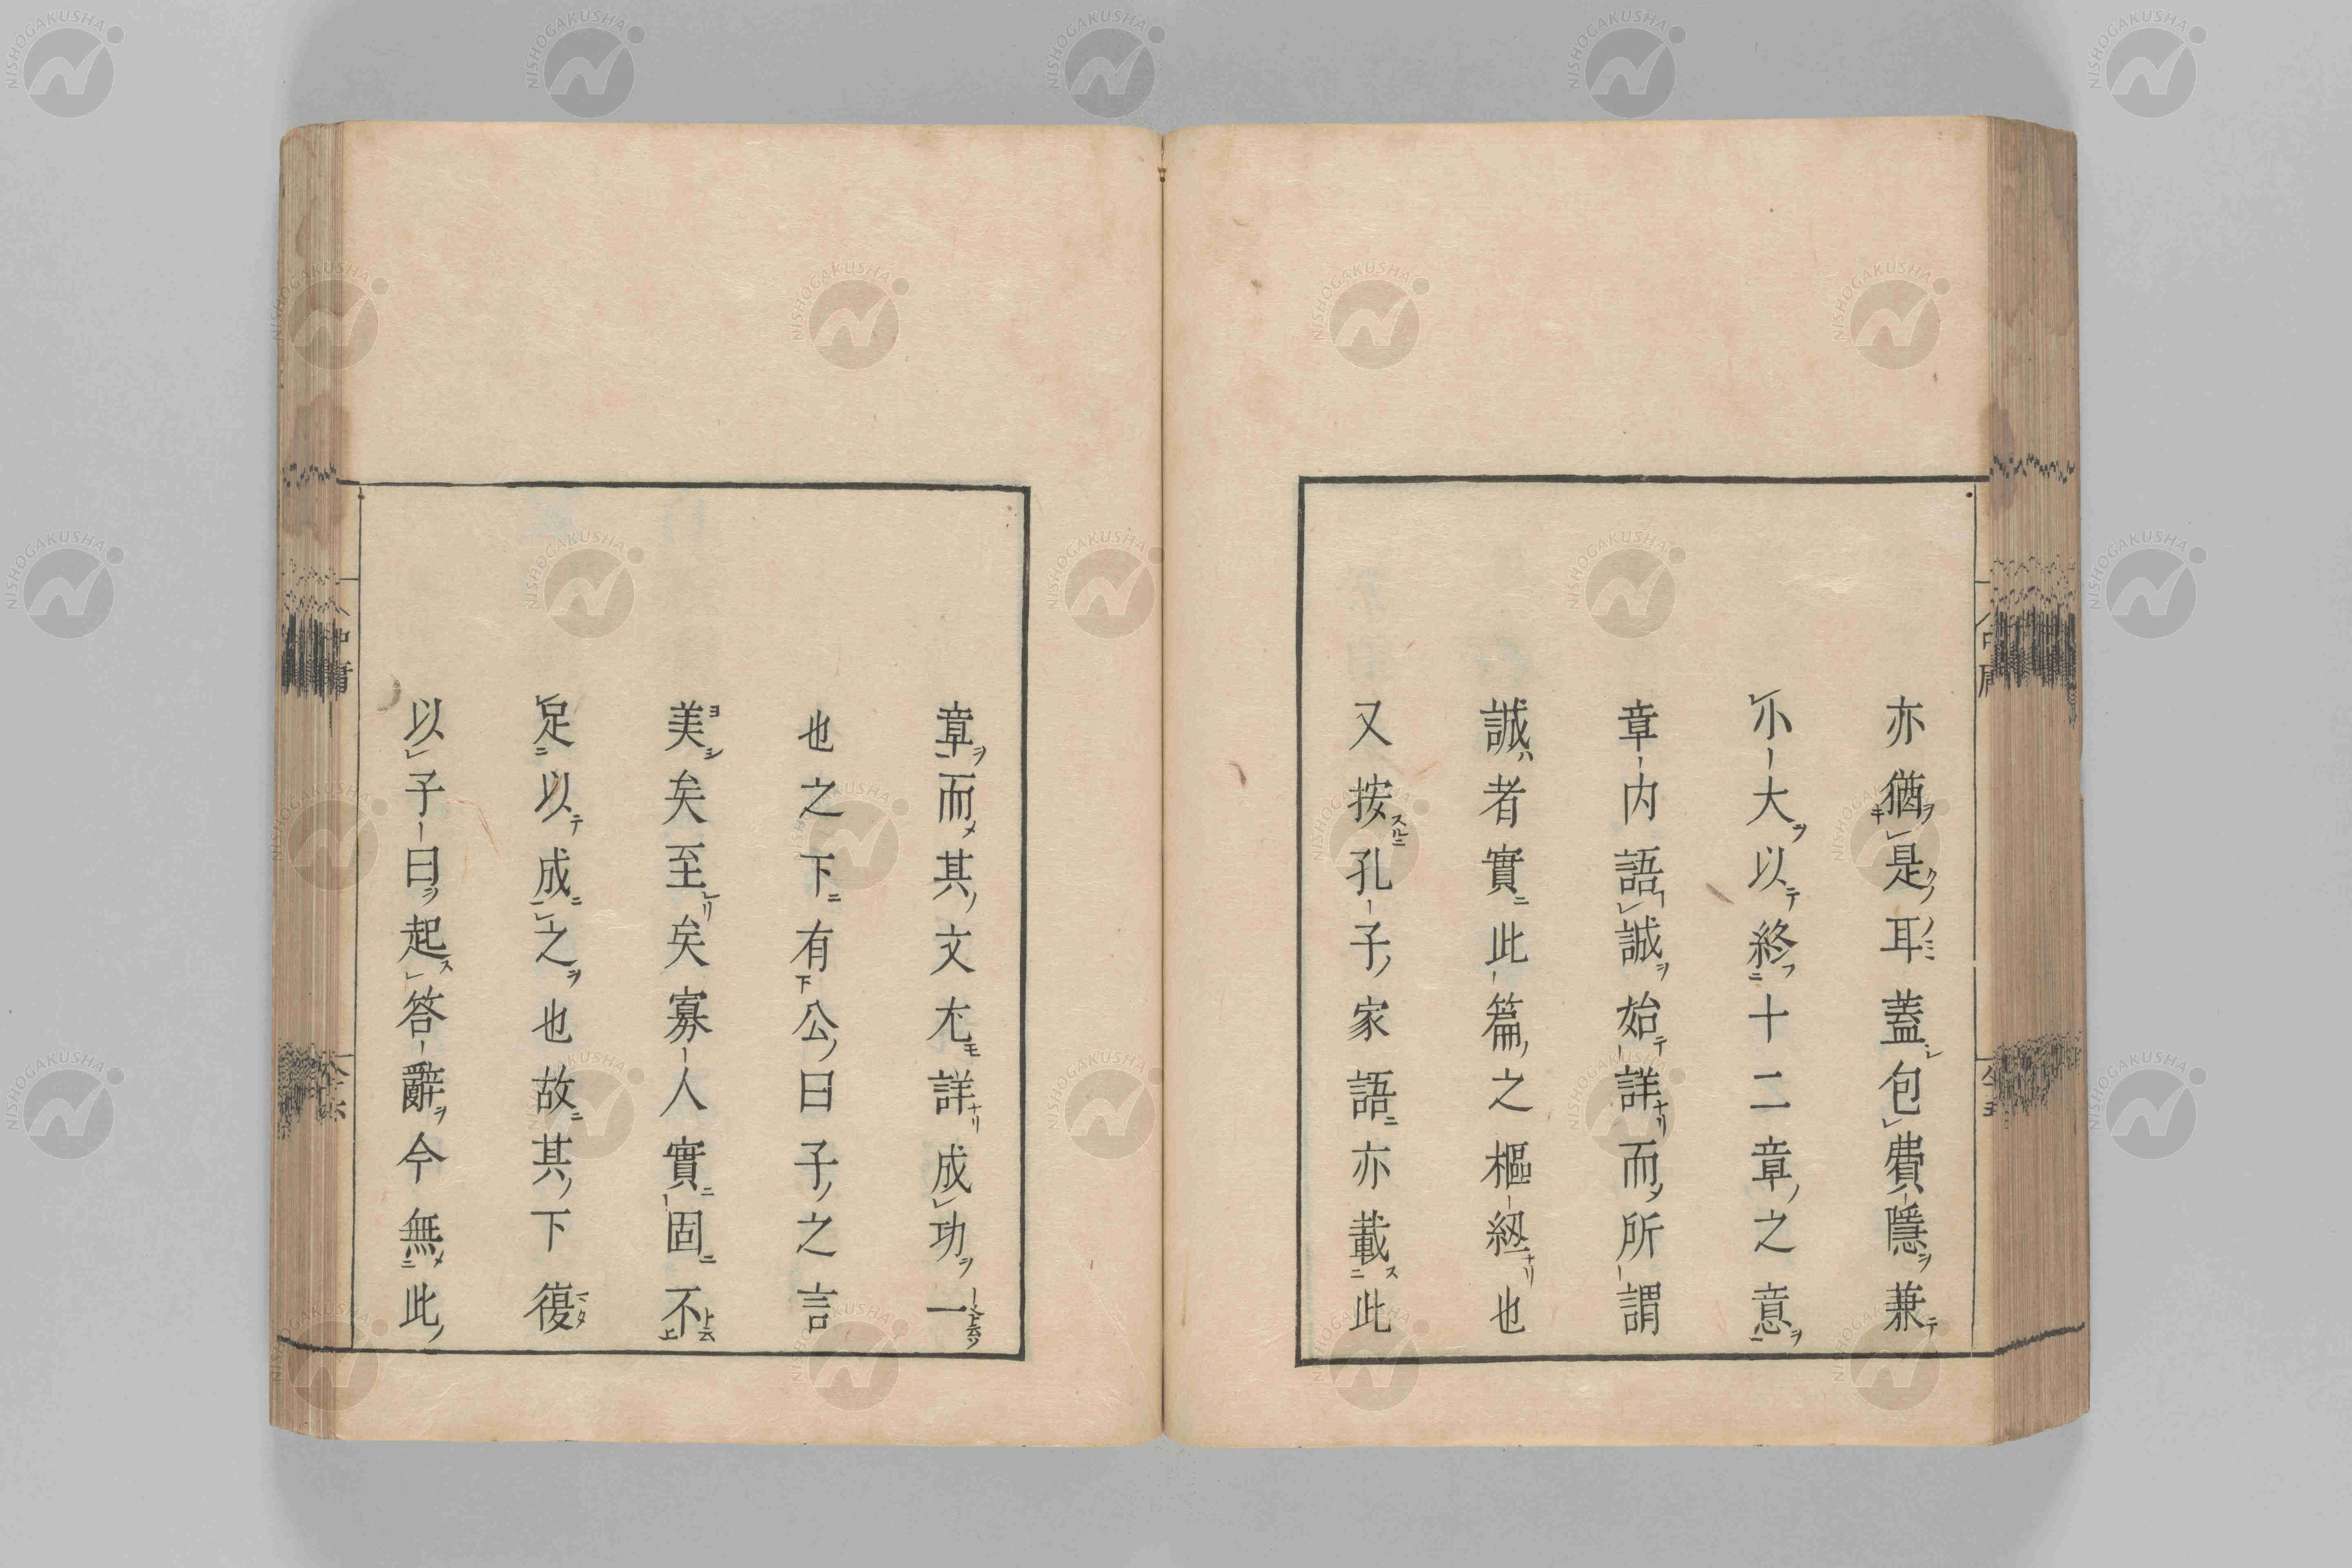 亦猶是耳蓋包費隱兼
小大以終十二章之意
章内語誠始詳而所謂
誠者實此篇之樞紐也
又按孔子家語亦載此
章而其文尤詳成功一
也之下有公曰子之言
美矣至矣寡人實固不
足以成之也故其下復
以子曰起答辭今無此